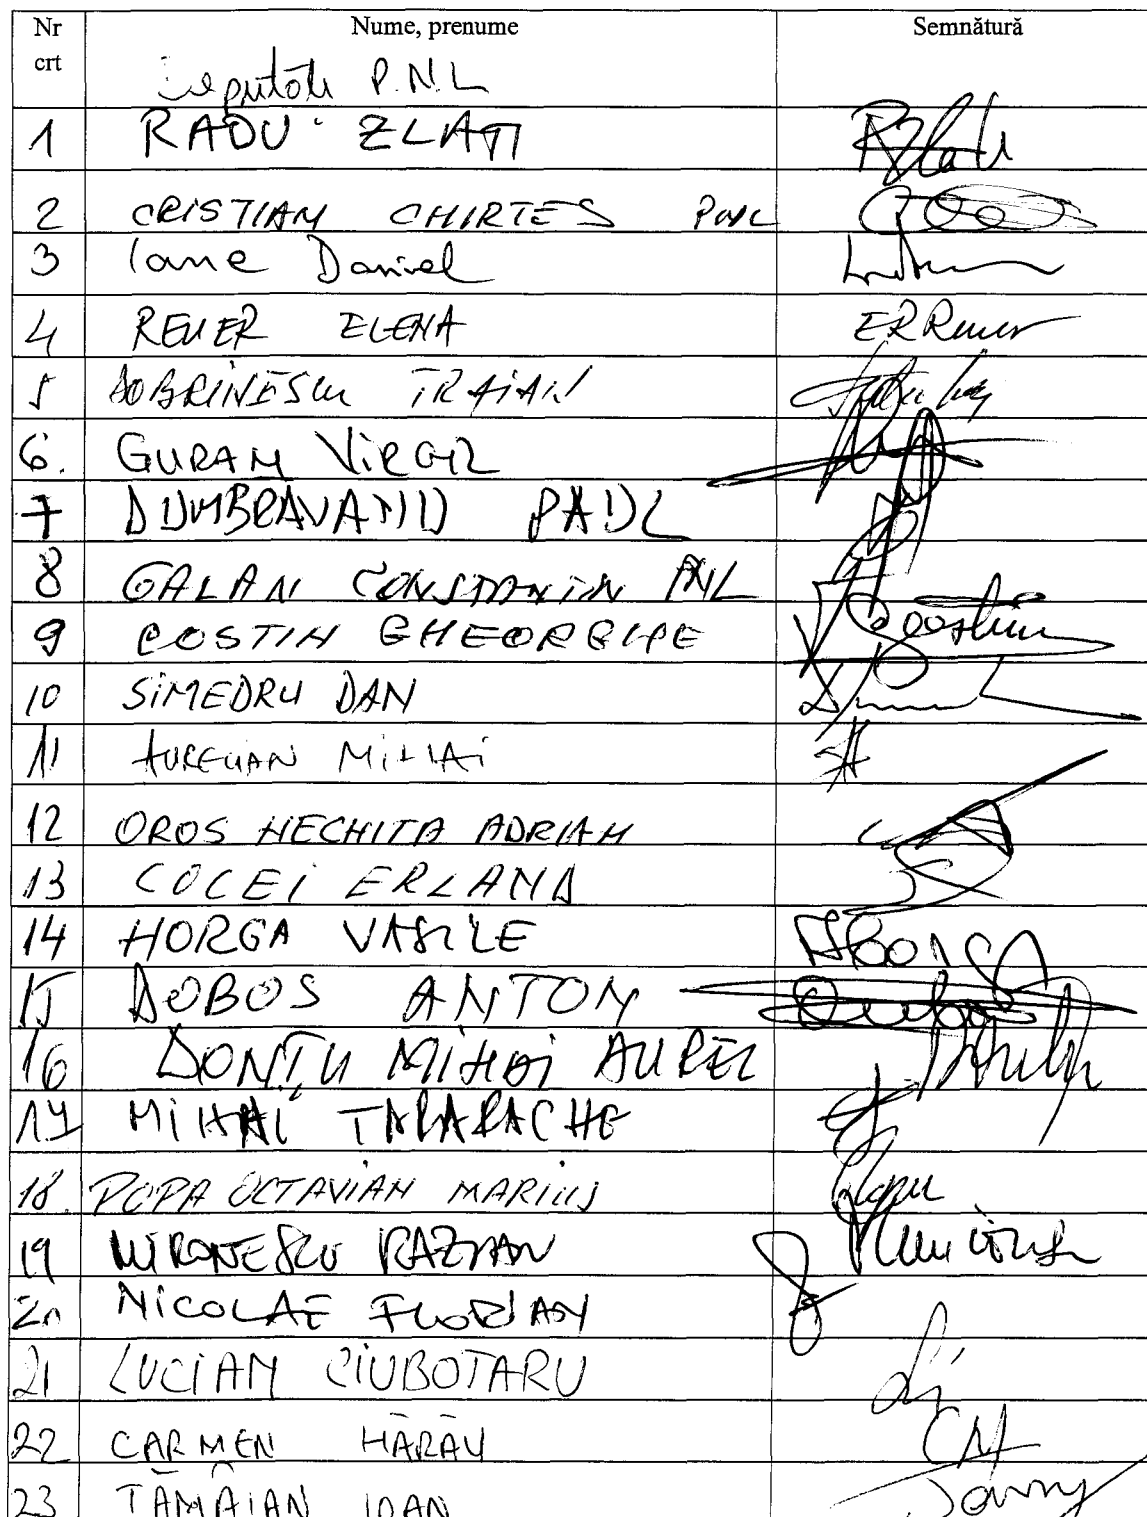 Nr crt Nume, prenume Semnătură
Deputați P.N.L
1 RADU ZLATI RZlati
2 CRISTIAN CHIRTEȘ PNL
3 Iane Daniel
4 REUER ELENA ERReuer
5 DOBRINESCU TRAIAN
6. GURAN VIRGIL
7 DUMBRAVANU PAUL
8 GALAN CONSTANTIN PNL
9 COSTIN GHEORGHE Costin
10 SIMEDRU DAN
11 AURELIAN MIHAI
12 OROS NECHITA ADRIAN
13 COCEI ERLAND
14 HORGA VASILE Horga
15 DOBOS ANTON
16 DONȚU MIHAI AUREL
17 MIHAI TARARACHE
18. POPA OCTAVIAN MARIUS
19 MIRONESCU RAZVAN
20 NICOLAE FLORIAN
21 LUCIAN CIUBOTARU
22 CARMEN HĂRĂU CH
23 TĂMÂIAN IOAN